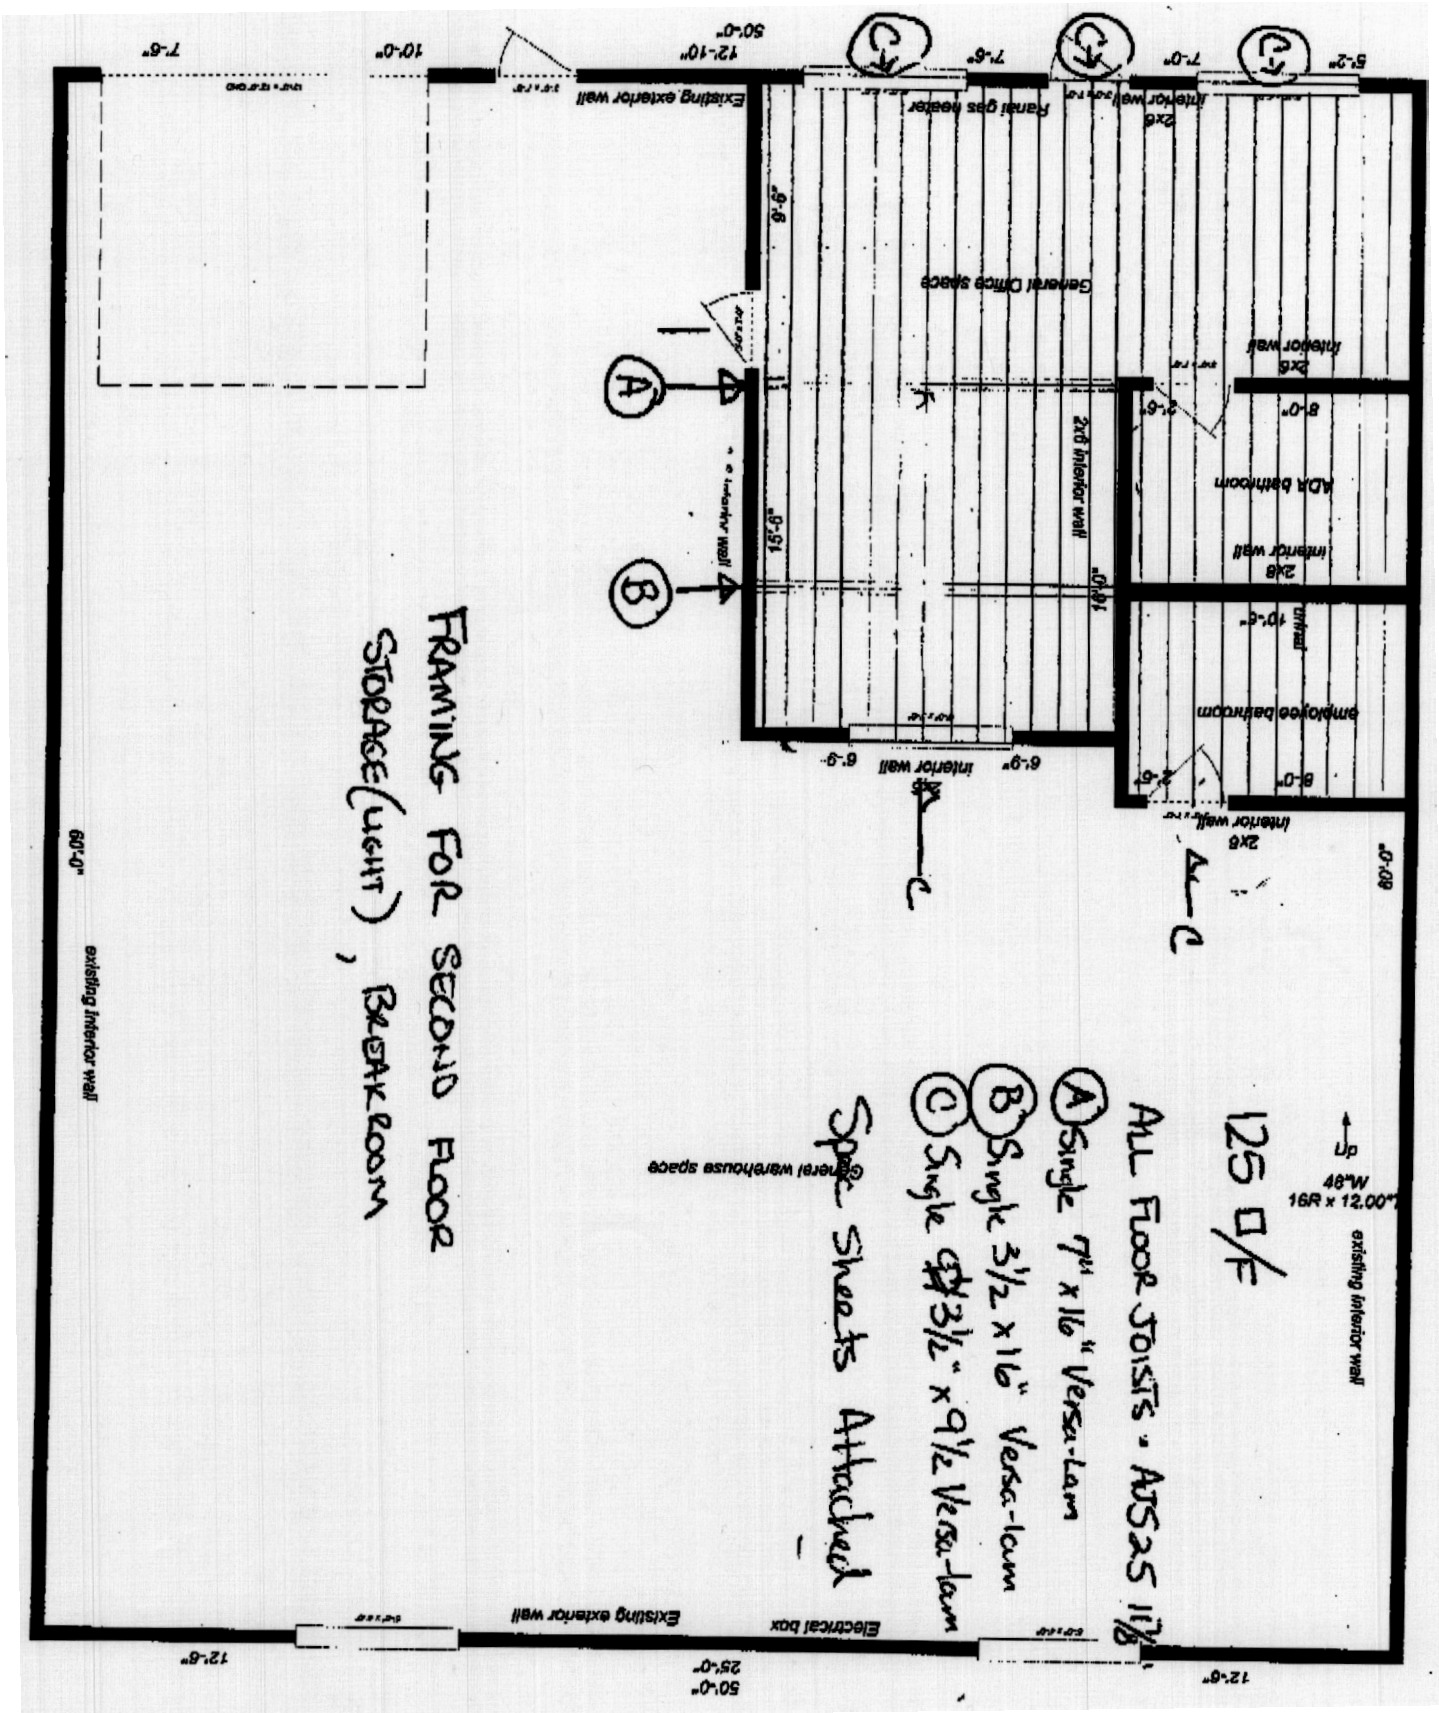 7'-6"
10'-0"
12'-10"
50'-0"
C
7'-6"
C
7'-0"
C
5'-2"
Existing exterior wall
Ranai gas heater
2x6
interior wall
9'-6"
General Office space
2x6
interior wall
A
2'-6"
8'-0"
2x6 interior wall
ADA bathroom
15'-6"
interior wall
2x6
interior wall
B
16'-0"
10'-6"
urinal
employee bathroom
6'-9"
interior wall
6'-9"
2'-6"
8'-0"
2x6
interior wall
C
C
60'-0"
60'-0"
existing interior wall
FRAMING FOR SECOND FLOOR
STORAGE (LIGHT) , BREAKROOM
125 □/F
ALL FLOOR JOISTS - AJS25 11 7/8
A Single 7" x 16" Versa-Lam
B Single 3 1/2 x 16" Versa-lam
C Single 3 1/2" x 9 1/2 Versa-lam
Spec Sheets Attached
General warehouse space
Up
48"W
16R x 12.00"T
existing interior wall
Existing exterior wall
Electrical box
12'-6"
25'-0"
50'-0"
12'-6"